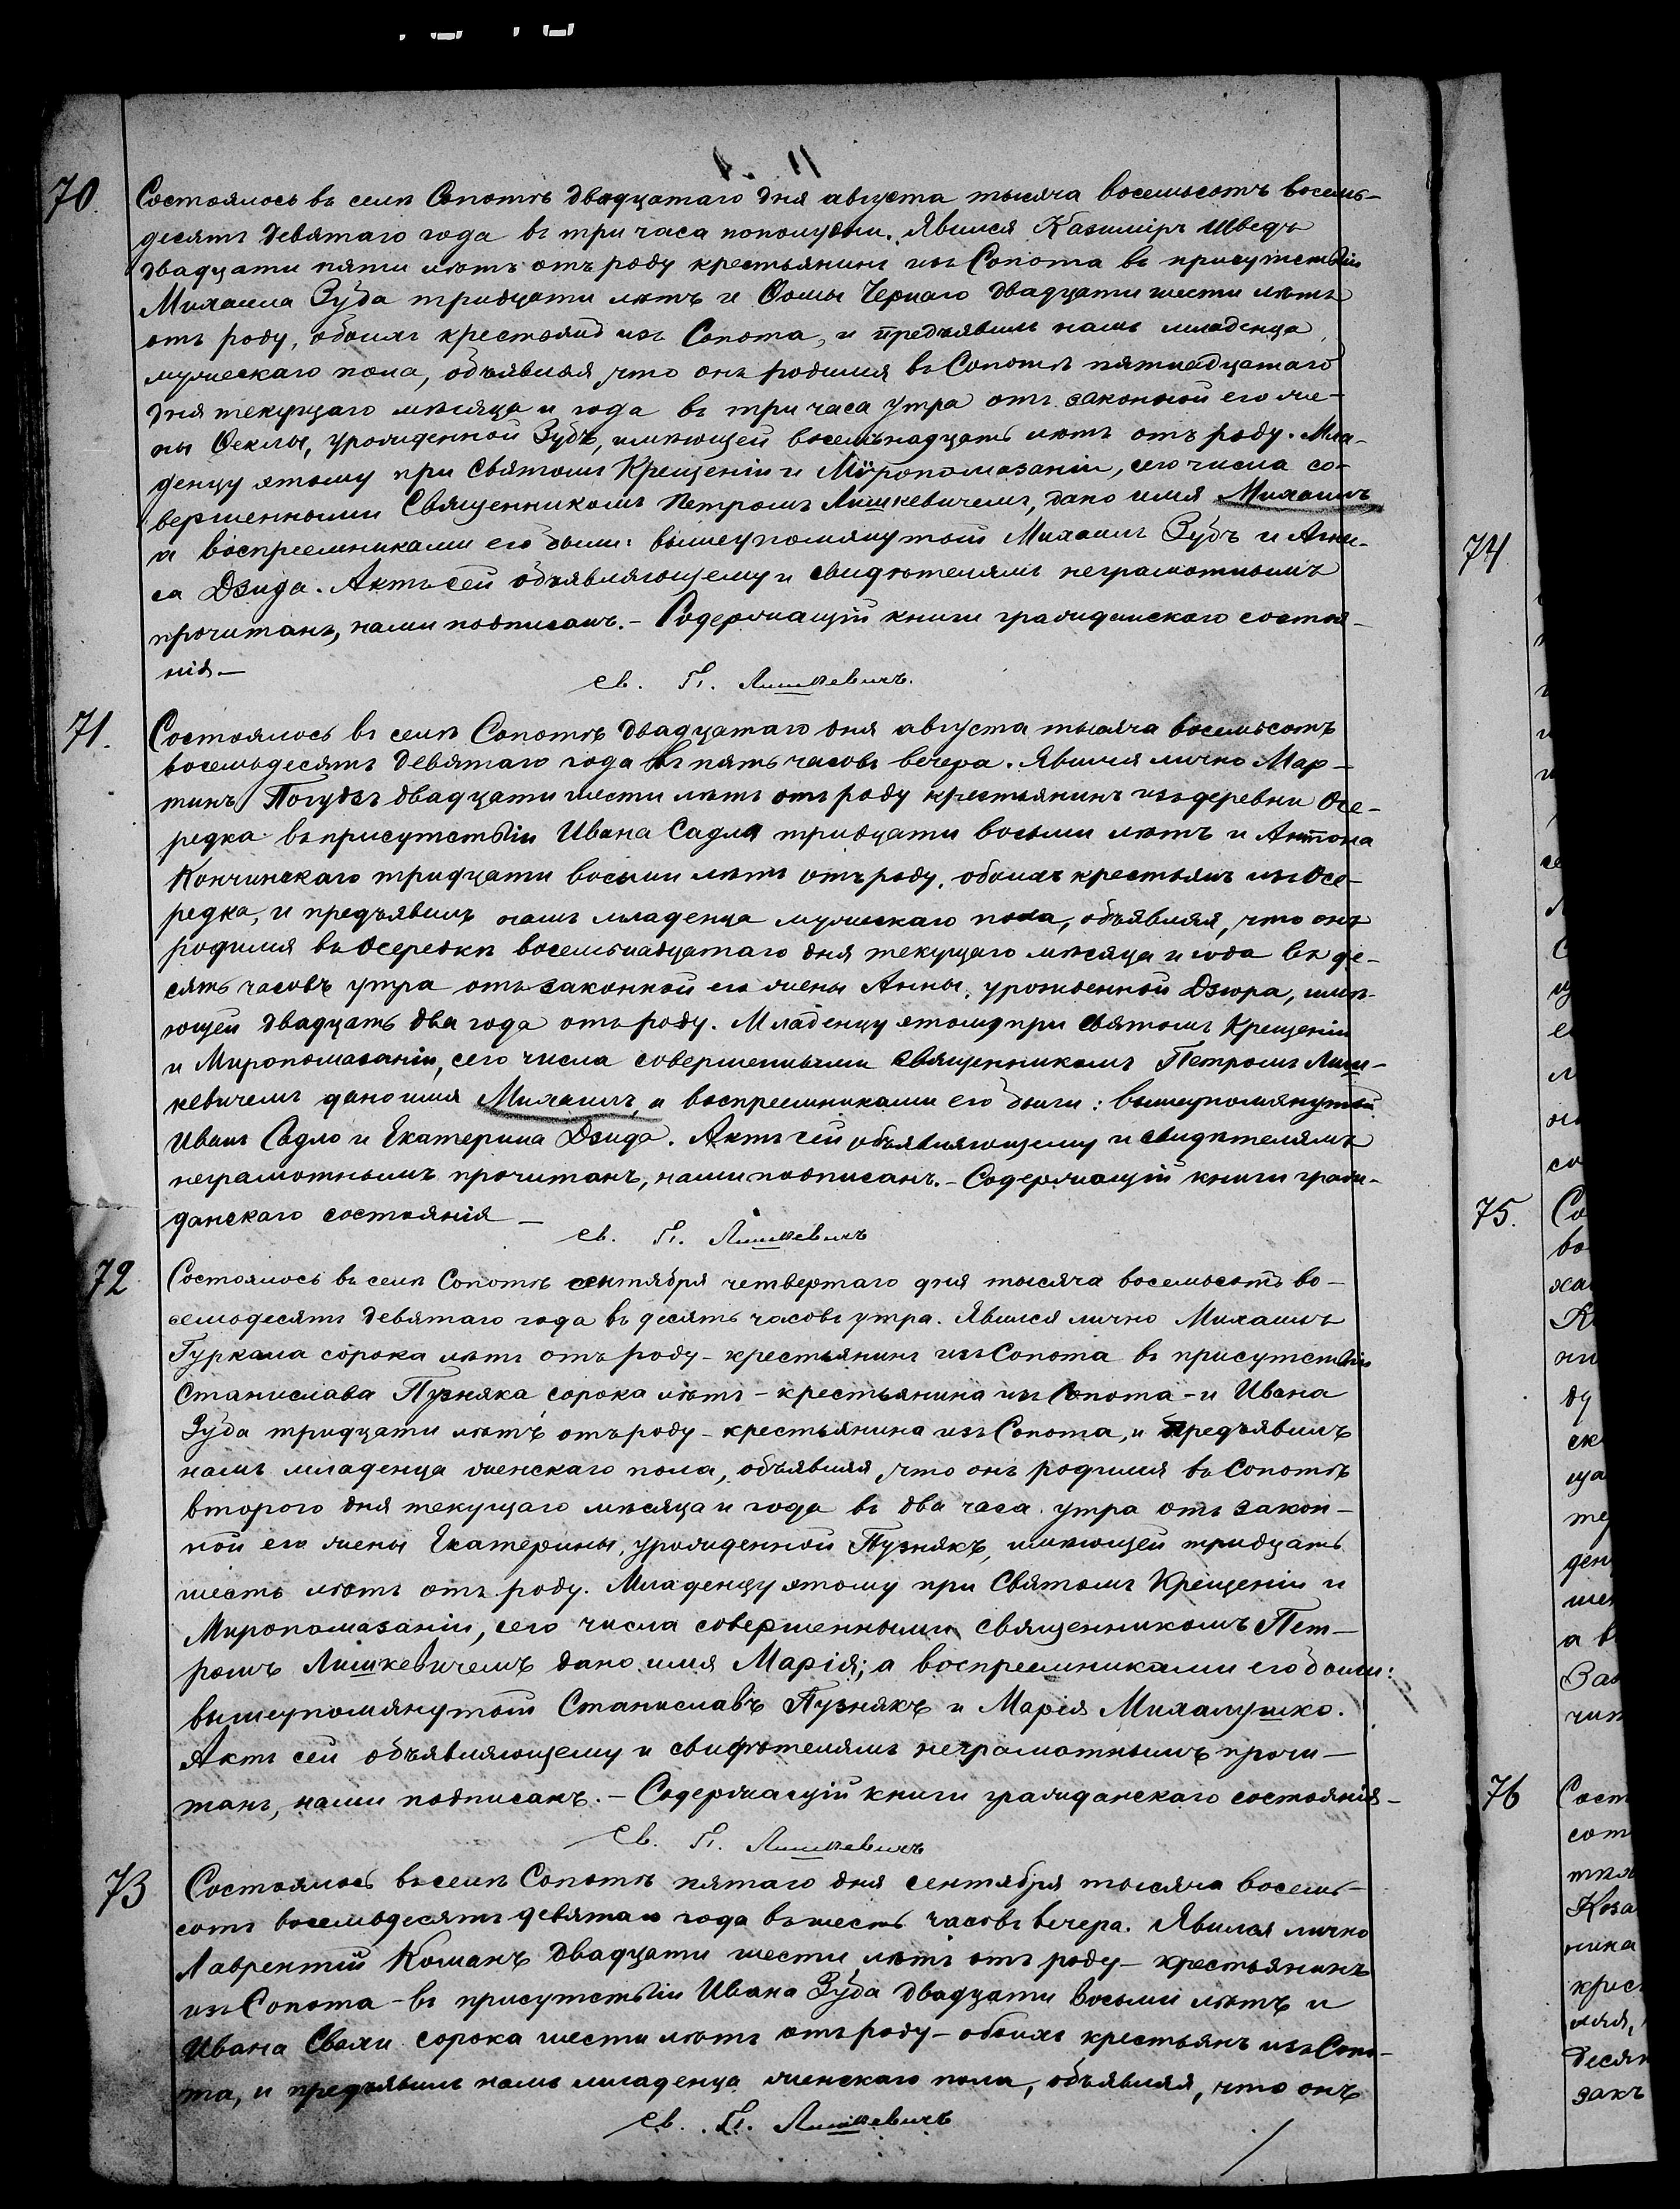 70. Состоялось въ селѣ Сопотѣ двадцатаго дня августа тысяча восемьсотъ восемь-
десятъ девятаго года въ три часа пополудни. Явился Казимiръ Шведъ
двадцати пяти лѣтъ отъ роду крестьянинъ изъ Сопота въ присутствiи
Михаила Зуба тридцати лѣтъ и Ѳомы Чернаго двадцати шести лѣтъ
отъ роду, обоихъ крестьянъ изъ Сопота, и предъявилъ намъ младенца
мужескаго пола, объявляя, что онъ родился въ Сопотѣ пятнадцатаго
дня текущаго мѣсяца и года въ три часа утра отъ законной его же-
ны Ѳеклы, урожденной Зубъ, имѣющей восемьнадцать лѣтъ отъ роду. Мла-
денцу этому при Святомъ Крещенiи и Мѵропомазанiи, сего числа со-
вершенными Священникомъ Петромъ Лишкевичемъ, дано имя Михаилъ,
а воспреемниками его были: вышеупомянутый Михаилъ Зубъ и Агни-
са Дзида. Актъ сей объявляющему и свидѣтелямъ неграмотнымъ
прочитанъ, нами подписанъ. – Содержащiй книги гражданскаго состоя-
нiя –
св. П. Лишкевичъ.
71. Состоялось въ селѣ Сопотѣ двадцатаго дня августа тысяча восемьсотъ
восемьдесятъ девятаго года въ пять часовъ вечера. Явился лично Мар-
тинъ Погудзъ двадцати шести лѣтъ отъ роду крестьянинъ изъ деревни Осе-
редка въ присутствiи Ивана Садла тридцати восьми лѣтъ и Антона
Кончинскаго тридцати восьми лѣтъ отъ роду, обоихъ крестьянъ изъ Осе-
редка, и предъявилъ намъ младенца мужескаго пола, объявляя, что онъ
родился въ Осередкѣ восемьнадцатаго дня текущаго мѣсяца и года въ де-
сять часовъ утра отъ законной его жены Анны, урожденной Дзюра, имѣ-
ющей двадцать два года отъ роду. Младенцу этому при Святомъ Крещенiи
и Миропомазанiи, сего числа совершенными Священникомъ Петромъ Лиш-
кевичемъ дано имя Михаилъ, а воспреемниками его были: вышеупомянутый
Иванъ Садло и Екатерина Дзида. Актъ сей объявляющему и свидѣтелямъ
неграмотнымъ прочитанъ, нами подписанъ. – Содержащiй книги граж-
данскаго состоянiя –
св. П. Лишкевичъ
72 Состоялось въ селѣ Сопотѣ сентября четвертаго дня тысяча восемьсотъ во-
семьдесятъ девятаго года въ десять часовъ утра. Явился лично Михаилъ
Гуркала сорока лѣтъ отъ роду – крестьянинъ изъ Сопота въ присутствiи
Станислава Пузняка сорока лѣтъ – крестьянина изъ Сопота – и Ивана
Зуба тридцати лѣтъ отъ роду – крестьянина изъ Сопота, и предъявилъ
намъ младенца женскаго пола, объявляя, что онъ родился въ Сопотѣ
второго дня текущаго мѣсяца и года въ два часа утра отъ закон-
ной его жены Екатерины, урожденной Пузнякъ, имѣющей тридцать
шесть лѣтъ отъ роду. Младенцу этому при Святомъ Крещенiи и
Миропомазанiи, сего числа совершенными священникомъ Пет-
ромъ Лишкевичемъ дано имя Марiя; а воспреемниками его были:
вышеупомянутый Станиславъ Пузнякъ и Марiя Михалушко.
Актъ сей объявляющему и свидѣтелямъ неграмотнымъ прочи-
танъ, нами подписанъ. – Содержащiй книги гражданскаго состоянiя –
св. П. Лишкевичъ
73 Состоялось въ селѣ Сопотѣ пятаго дня сентября тысяча восемь-
сотъ восемьдесятъ девятаго года въ шесть часовъ вечера. Явился лично
Лаврентiй Команъ двадцати шести лѣтъ отъ роду – крестьянинъ
изъ Сопота – въ присутствiи Ивана Зуба двадцати восьми лѣтъ и
Ивана сорока шести лѣтъ отъ роду – обоихъ крестьянъ изъ Сопо-
та, и предъявилъ намъ младенца женскаго пола, объявляя, что онъ
св. П. Лишкевичъ
74
75.
76